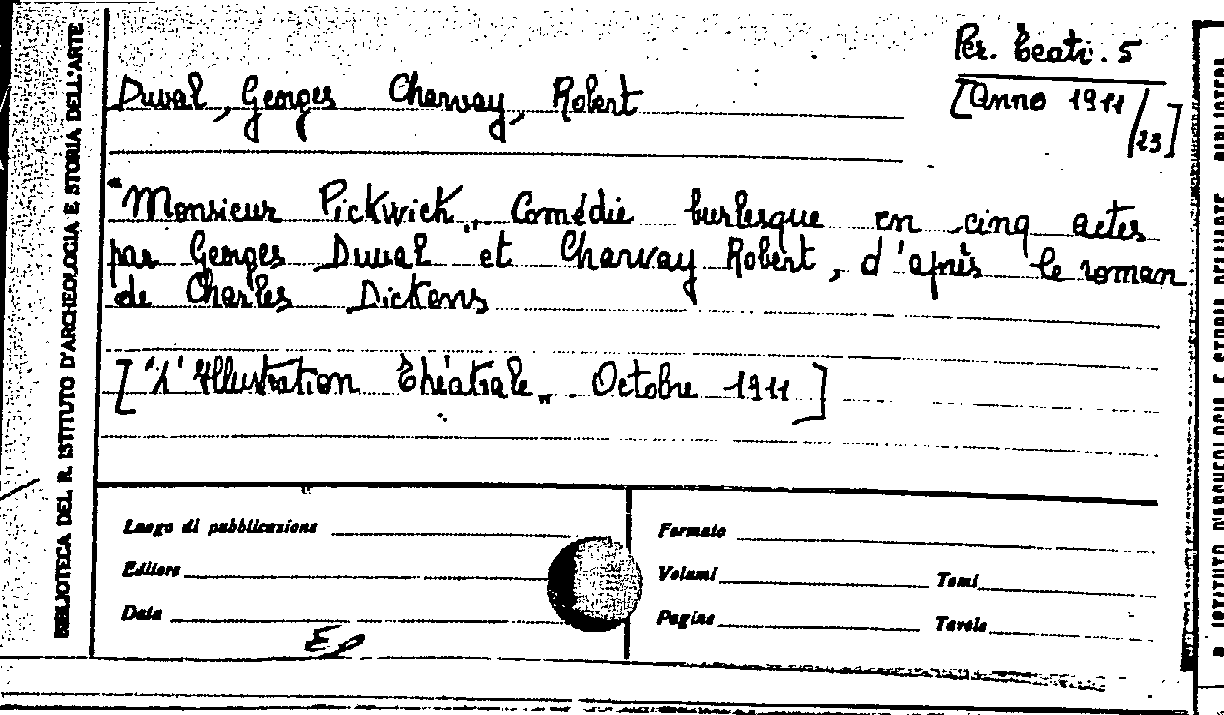 Per. Teatr. 5
[Anno 1911/23]
Duval, Georges Charvay, Robert
"Monsieur Pickwick„ Comédie burlesque en cinq actes
par Georges Duval et Charvay Robert, d'après le roman
de Charles Dickens
["L'Illustration Théâtrale„ Octobre 1911]
Luogo di pubblicazione
Editore
Data
Formato
Volumi Tomi
Pagine Tavole
BIBLIOTECA DEL R. ISTITUTO D'ARCHEOLOGIA E STORIA DELL'ARTE